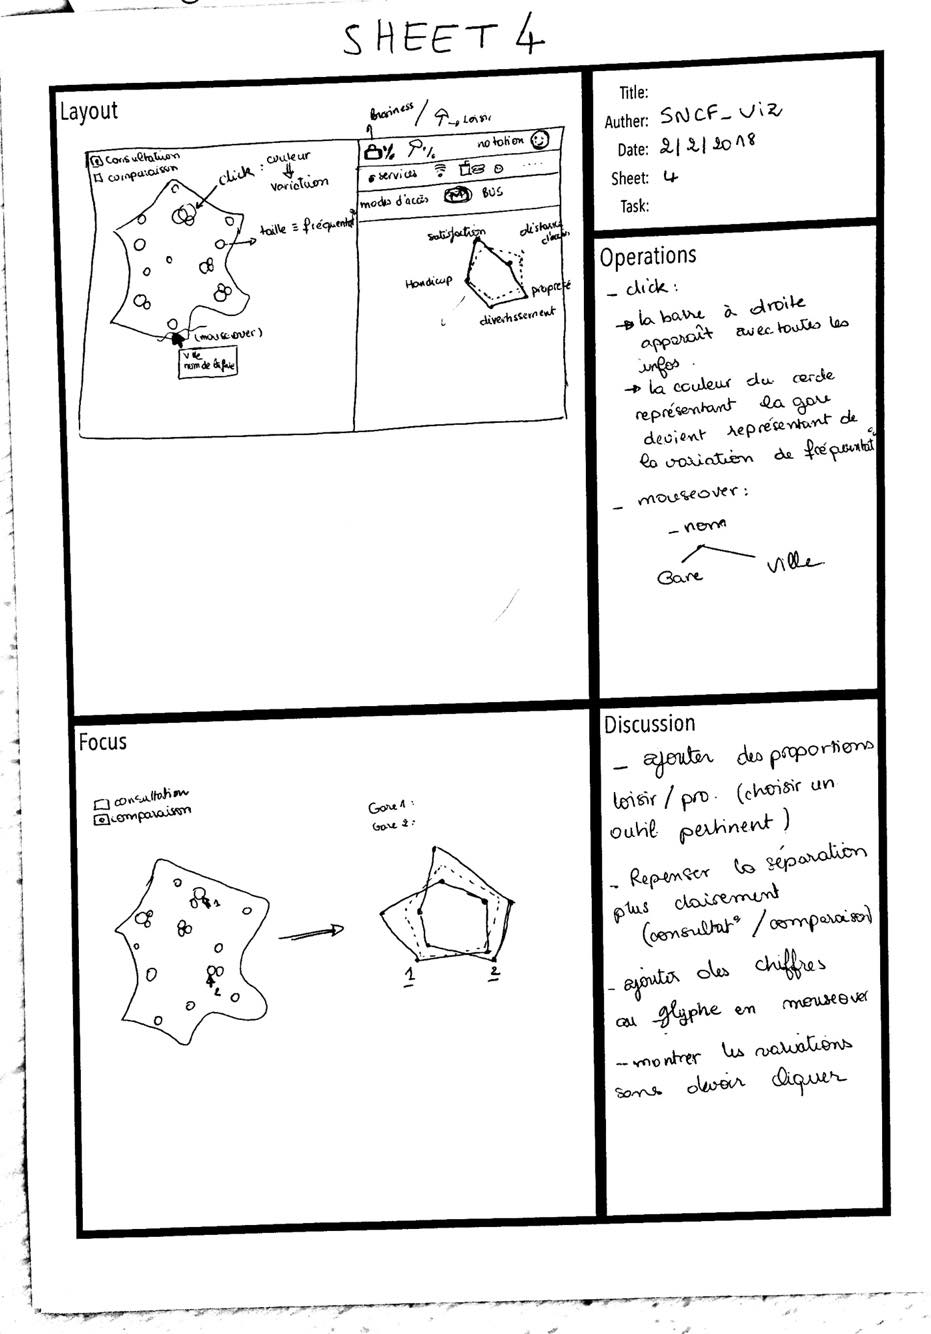 SHEET 4
Layout
Business / → Loisir
consultation
comparaison
click : couleur
variation
taille ≡ fréquentat°
(mouseover)
ville
nom de la gare
% % notation
services
modes d'accès BUS
satisfaction
distance
Handicap
propreté
divertissement
Title:
Auther: SNCF_Viz
Date: 2/2/2018
Sheet: 4
Task:
Operations
- click :
→ la barre à droite
apparaît avec toutes les
infos.
→ la couleur du cercle
représentant la gare
devient représentant de
la variation de fréquentat°
- mouseover :
- nom
Gare ville
Focus
consultation
comparaison
Gare 1 :
Gare 2 :
1
2
1 2
Discussion
- ajouter des proportions
loisir / pro. (choisir un
outil pertinent)
- Repenser la séparation
plus clairement
(consultat° / comparaison)
- ajouter des chiffres
au glyphe en mouseover
- montrer les variations
sans devoir cliquer